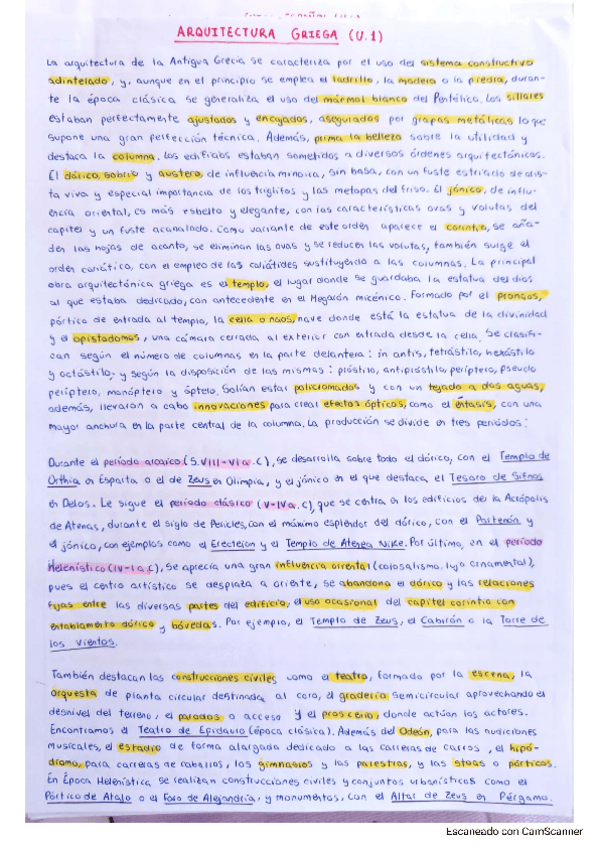 ARQUITECTURA GRIEGA (U.1)
La arquitectura de la Antigua Grecia se caracteriza por el uso del sistema constructivo
adintelado, y, aunque en el principio se emplea el ladrillo, la madera o la piedra, duran-
te la época clásica se generaliza el uso del mármol blanco del Pentélico. Los sillares
estaban perfectamente ajustados y encajados, asegurados por grapas metálicas lo que
supone una gran perfección técnica. Además, prima la belleza sobre la utilidad y
destaca la columna. Los edificios estaban sometidos a diversos órdenes arquitectónicos.
El dórico, sobrio y austero, de influencia minoica, sin basa, con un fuste estriado de aris-
ta viva y especial importancia de los triglifos y las metopas del friso. El jónico, de influ-
encia oriental, es más esbelto y elegante, con las características ovas y volutas del
capitel y un fuste acanalado. Como variante de este orden aparece el corintio, se aña-
den las hojas de acanto, se eliminan las ovas y se reducen las volutas, también surge el
orden cariático, con el empleo de las cariátides sustituyendo a las columnas. La principal
obra arquitectónica griega es el templo, el lugar donde se guardaba la estatua del dios
al que estaba dedicado, con antecedente en el Megarón micénico. Formado por el pronaos,
pórtico de entrada al templo, la cella o naos, nave donde está la estatua de la divinidad
y el opistodomos, una cámara cerrada al exterior con entrada desde la cella. Se clasifi-
can según el número de columnas en la parte delantera: in antis, tetrástilo, hexástilo
y octástilo, y según la disposición de las mismas: próstilo, antipróstilo, períptero, pseudo
períptero, monóptero y óptero. Solían estar policromados y con un tejado a dos aguas,
además, llevaron a cabo innovaciones para crear efectos ópticos, como el éntasis, con una
mayor anchura en la parte central de la columna. La producción se divide en tres periodos:
Durante el período arcaico (S.VIII-VI a.C), se desarrolla sobre todo el dórico, con el Templo de
Orthia en Esparta o el de Zeus en Olimpia, y el jónico en el que destaca el Tesoro de Sifnos
en Delos. Le sigue el período clásico (V-IV a.C), que se centra en los edificios de la Acrópolis
de Atenas, durante el siglo de Pericles, con el máximo esplendor del dórico, con el Partenón y
el jónico, con ejemplos como el Erecteion y el Templo de Atenea Niké. Por último, en el período
Helenístico (IV-I a.C), se aprecia una gran influencia oriental (colosalismo, lujo ornamental),
pues el centro artístico se desplaza a oriente, se abandona el dórico y las relaciones
fijas entre las diversas partes del edificio, el uso ocasional del capitel corintio con
entablamento dórico y bóvedas. Por ejemplo, el Templo de Zeus, el Cabirón o la Torre de
los Vientos.
También destacan las construcciones civiles como el teatro, formado por la escena, la
orquesta de planta circular destinada al coro, el graderío semicircular aprovechando el
desnivel del terreno, el parodos o acceso y el proscenio, donde actúan los actores.
Encontramos el Teatro de Epidauro (época clásica). Además del Odeón, para las audiciones
musicales, el estadio de forma alargada dedicado a las carreras de carros, el hipó-
dromo, para carreras de caballos, los gimnasios y las palestras, y las stoas o pórticos.
En Época Helenística se realizan construcciones civiles y conjuntos urbanísticos como el
Pórtico de Atalo o el Faro de Alejandría, y monumentos, con el Altar de Zeus en Pérgamo.
Escaneado con CamScanner